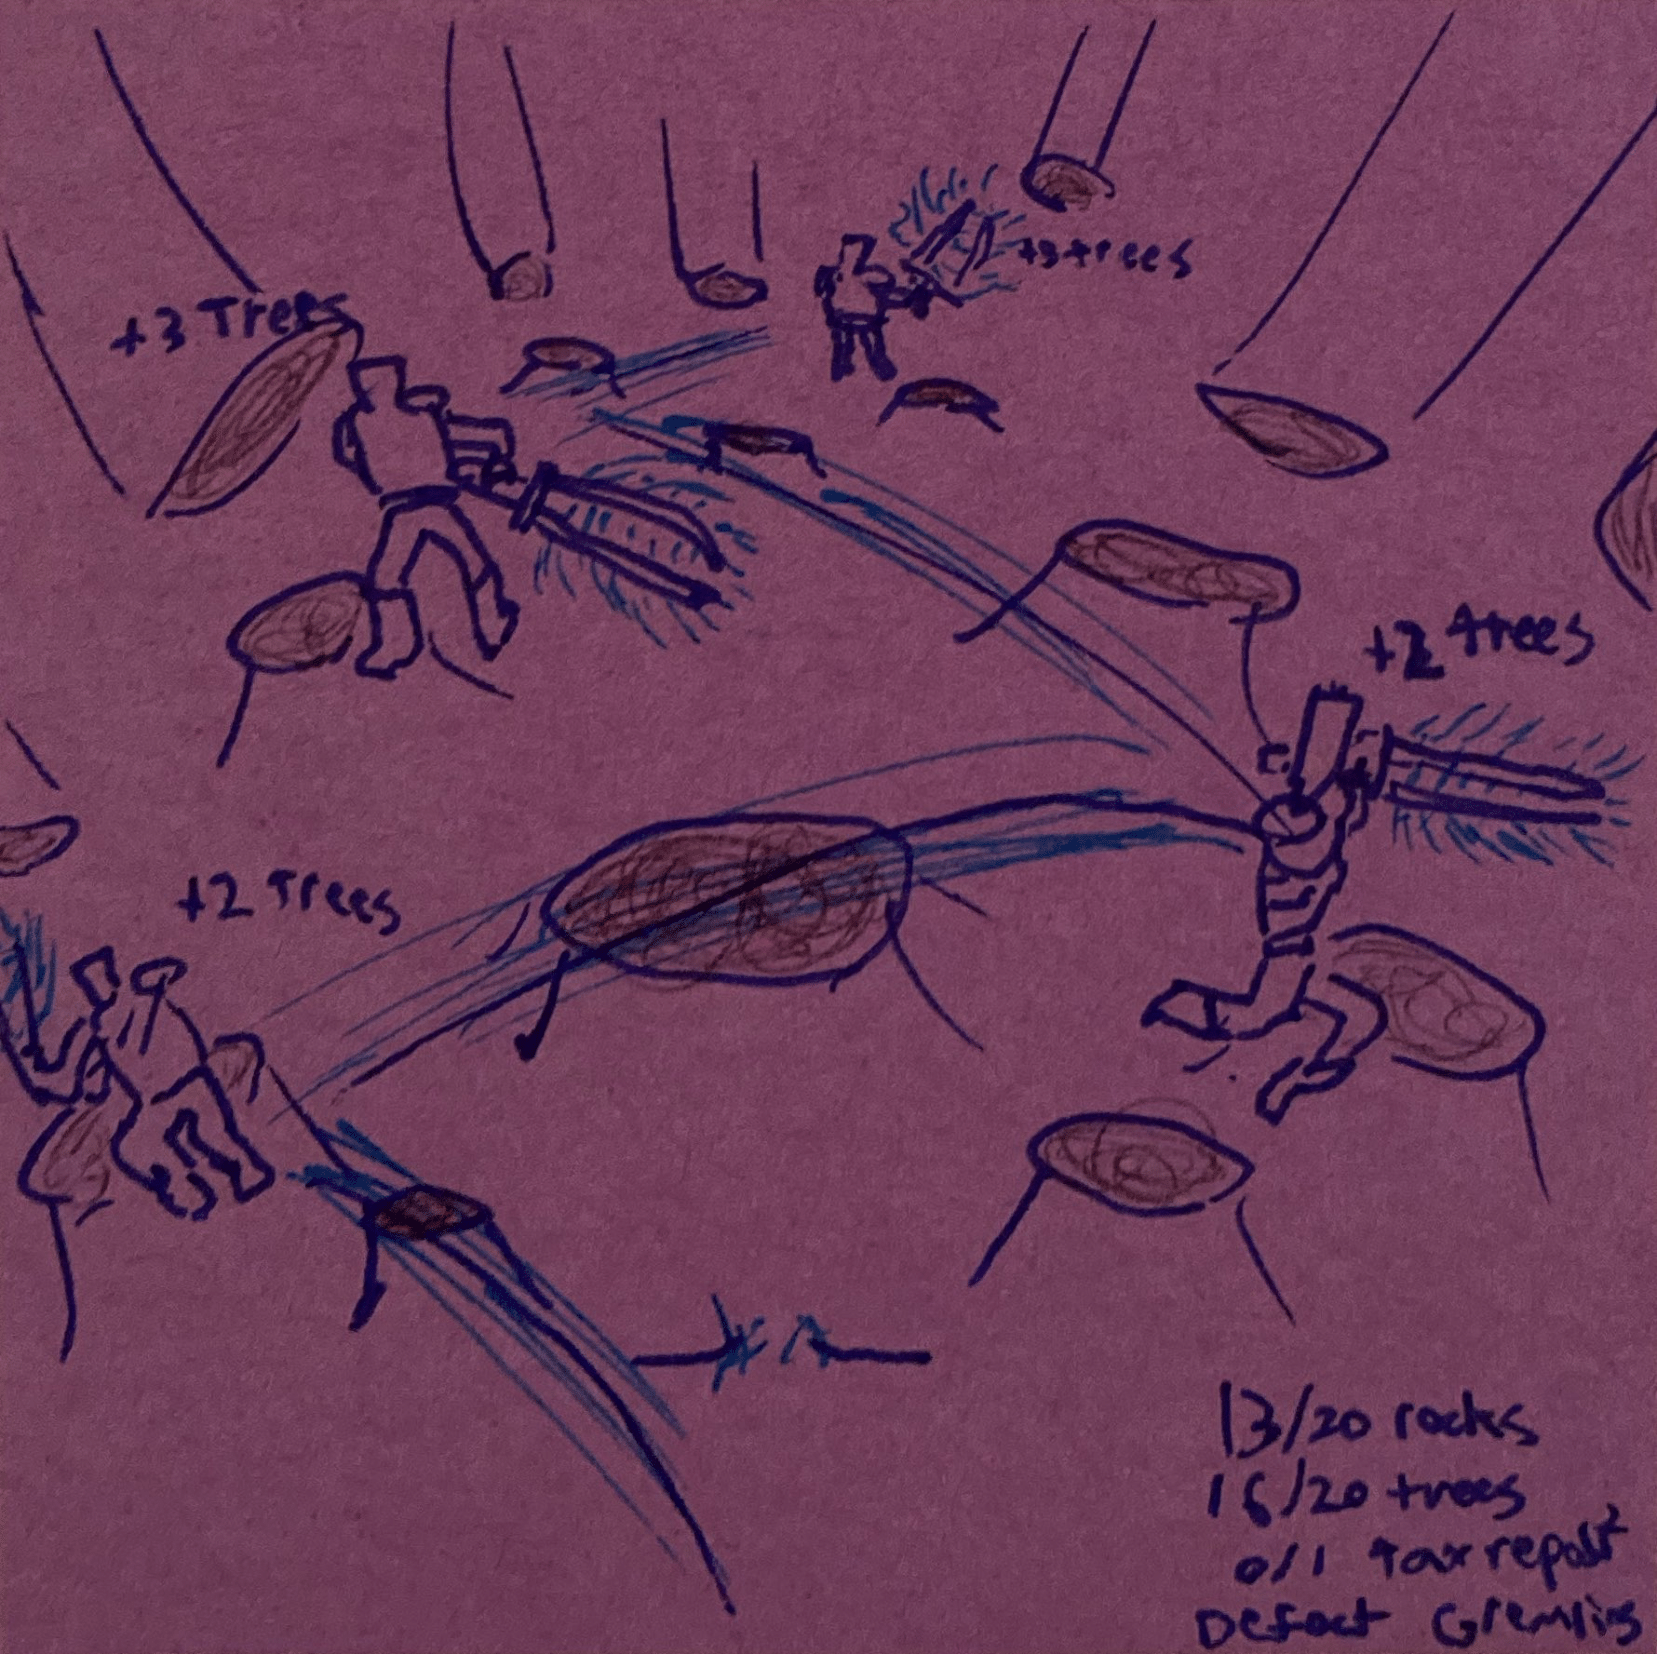 +3 trees
+3 Trees
+2 trees
+2 Trees
13/20 rocks
16/20 trees
0/1 tax report
Defeat Gremlins